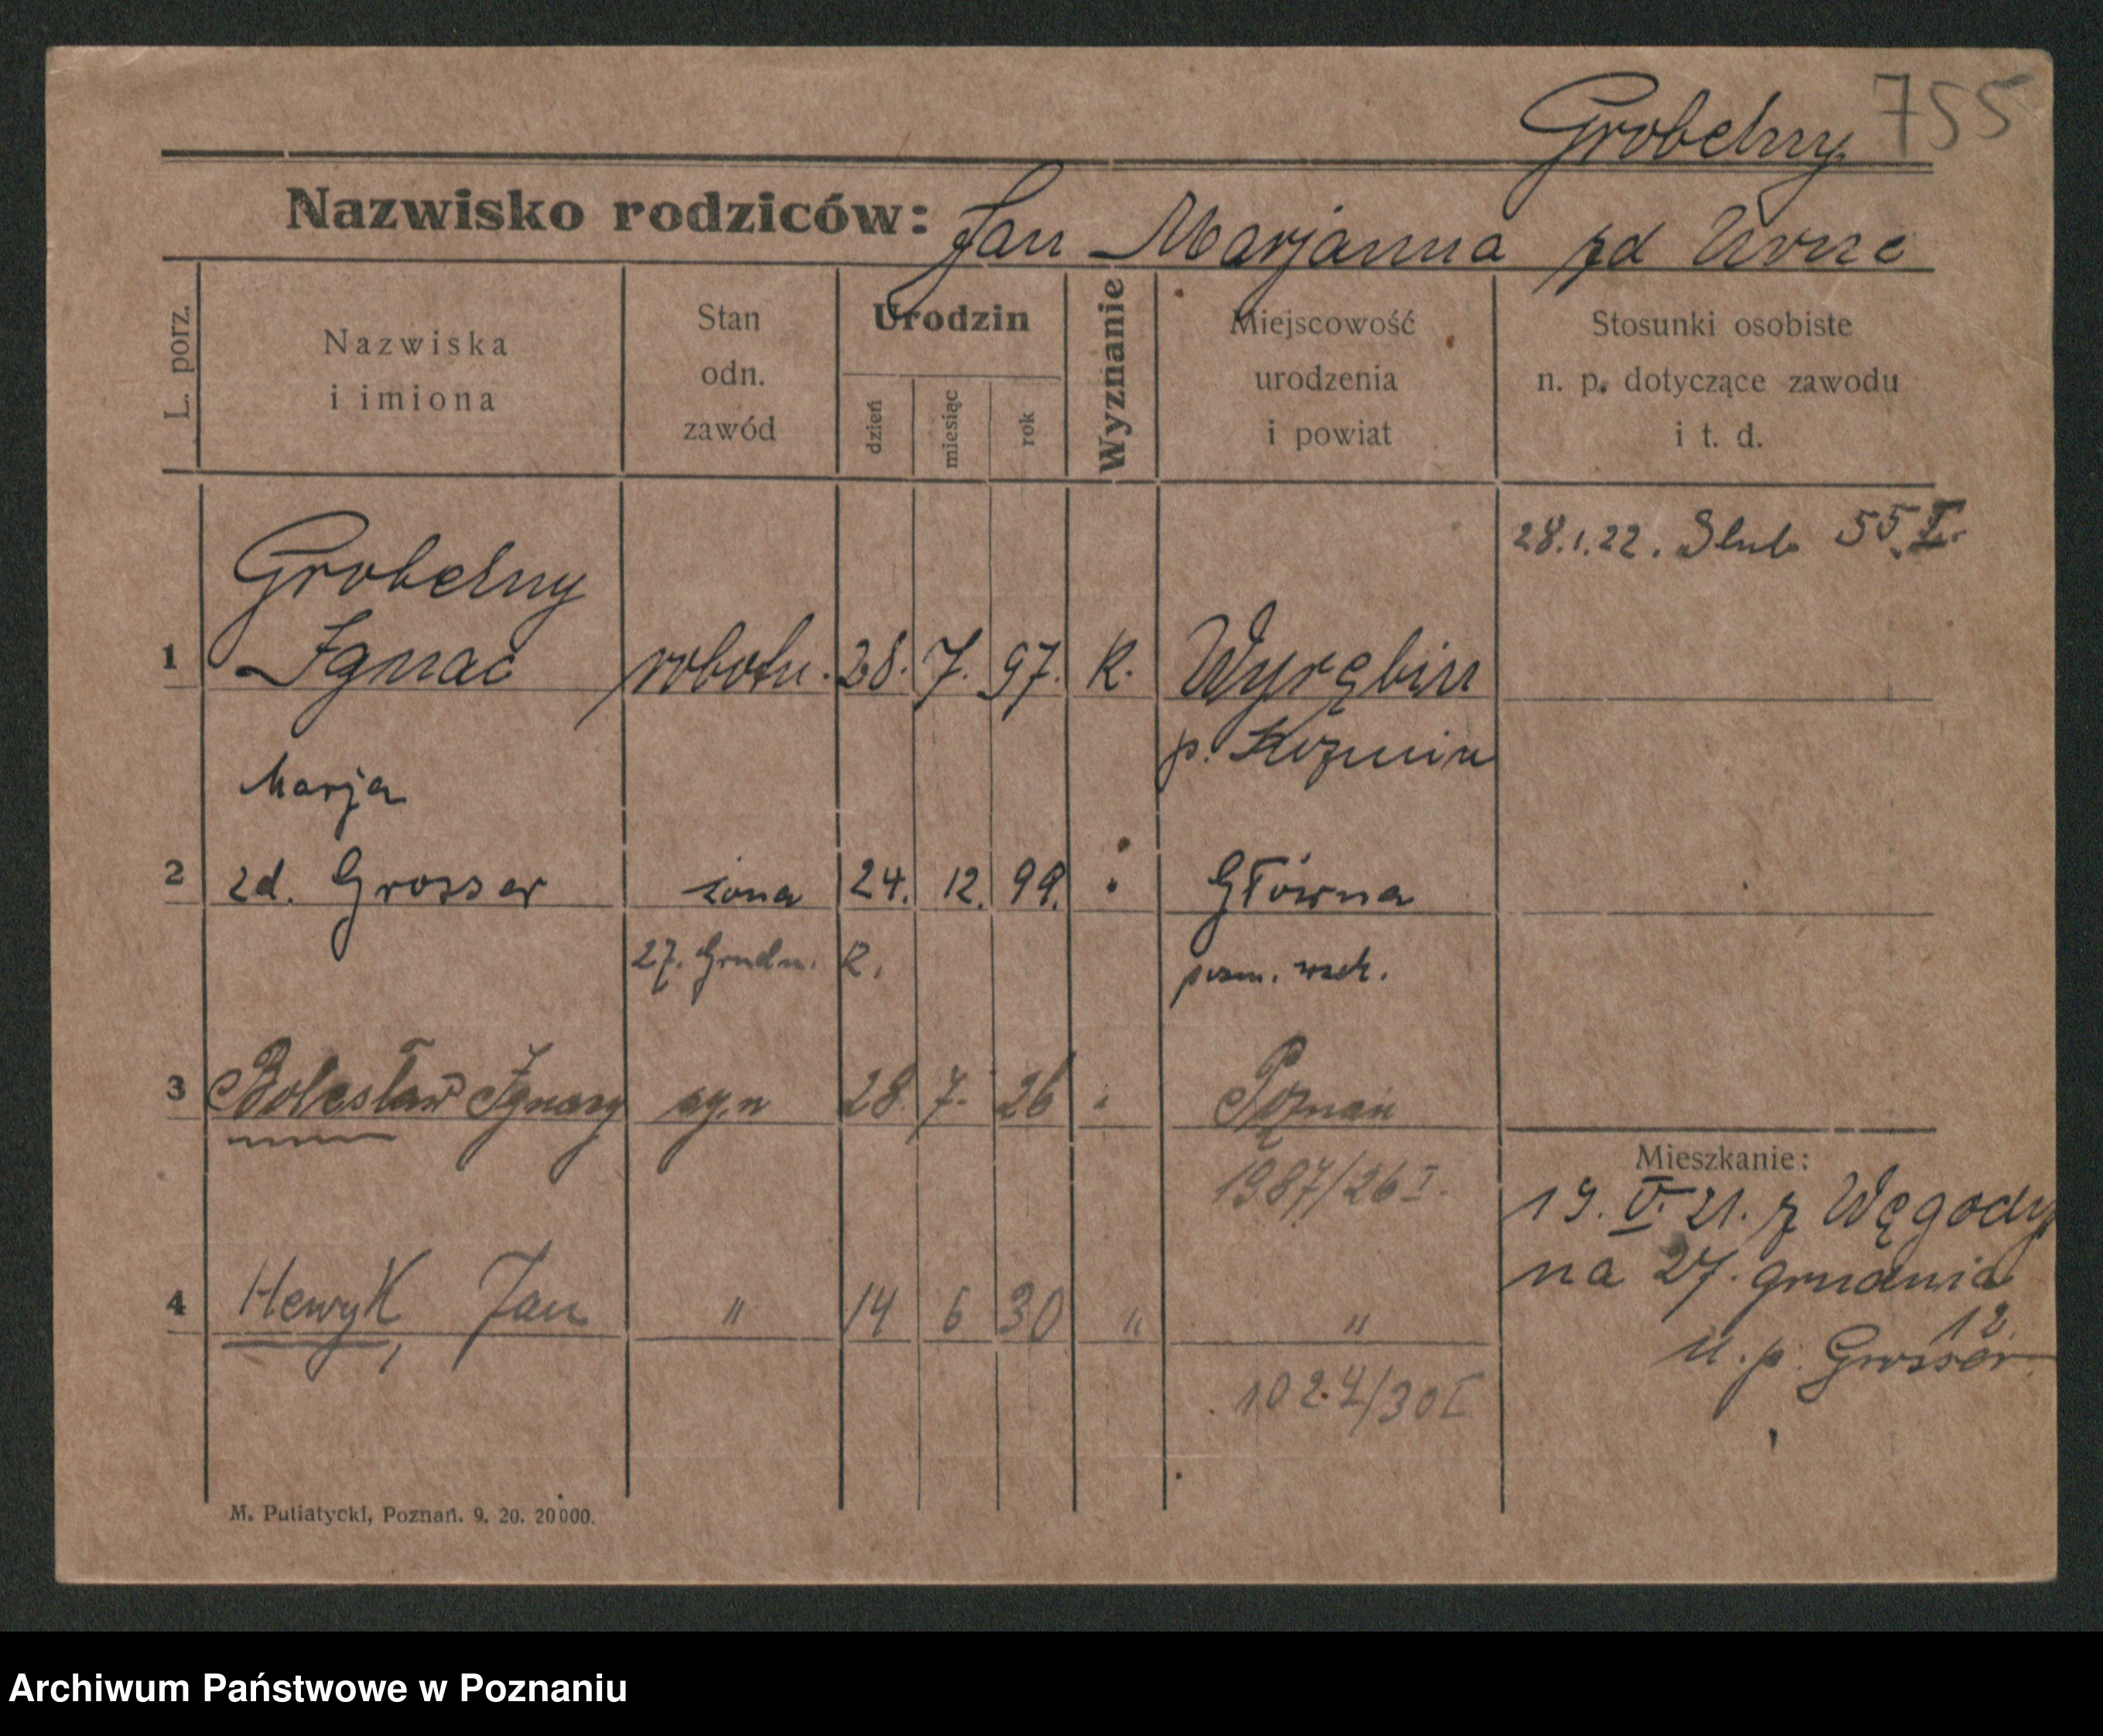 Grobelny 755
Nazwisko rodziców: Jan Marjanna zd
L. porz.
Nazwiska
i imiona
Stan
odn.
zawód
Urodzin
dzień
miesiąc
rok
Wyznanie
Miejscowość
urodzenia
i powiat
Stosunki osobiste
n. p. dotyczące zawodu
i t. d.
28.1.22. Slub 55
Grobelny
1 Ignac robotn. 28. 7. 97. K. Wyrębin
p. Koźmin
Marja
2 zd. Grosser żona 24. 12. 99. " Główna
27. Grudn. 12. pozn. wsch.
3 Bolesław Ignacy syn 28 7. 26 " Poznań
1987/26 I.
4 Henryk, Jan " 14 6 30 " "
1024/30 I
Mieszkanie:
19. V. 21. z Węgody
na 27. grudnia
12.
u. p. Grosser
M. Putiatycki, Poznań. 9. 20. 20000.
Archiwum Państwowe w Poznaniu